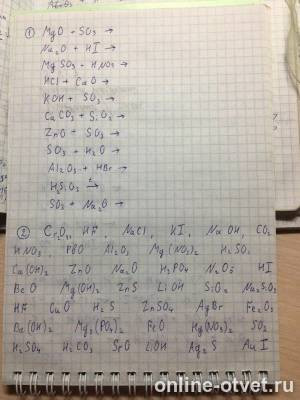 ① MgO + SO₃ →
Na₂O + HI →
MgSO₃ + HNO₃ →
HCl + CaO →
KOH + SO₃ →
CaCO₃ + SiO₂ →
ZnO + SO₃ →
SO₃ + H₂O →
Al₂O₃ + HBr →
H₂SiO₃ →
SO₃ + Na₂O →
② HF, NaCl, KI, NaOH, CO₂
HNO₃, PbO Al₂O₃ Mg(NO₃)₂ H₂SO₃
Ca(OH)₂ ZnO Na₂O H₃PO₄ N₂O₅ HI
BeO Mg(OH)₂ ZnS LiOH SiO₂ Na₂SiO₃
HF CaO H₂S ZnSO₄ AgBr Fe₂O₃
Be(OH)₂ Mg₃(PO₄)₂ FeO Hg(NO₃)₂ SO₂
H₂SO₄ H₂CO₃ SrO LiOH Ag₂S AuI
online-otvet.ru